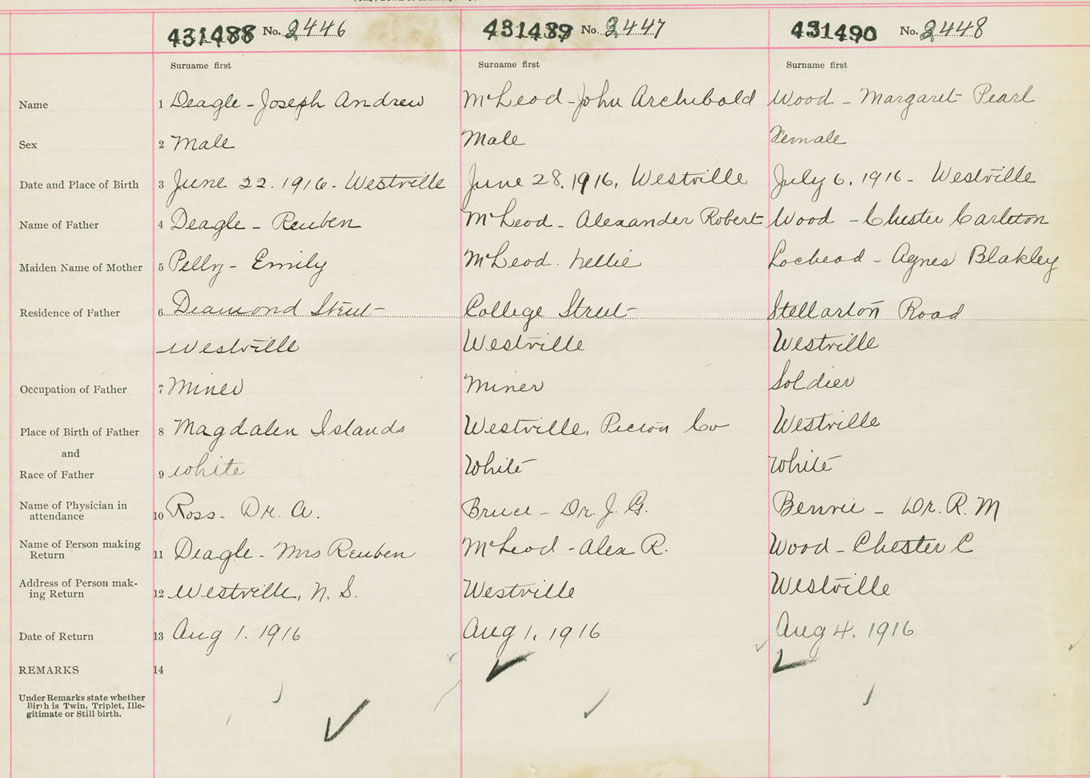 431488 No. 2446 431489 No. 2447 431490 No. 2448
Surname first Surname first Surname first
Name 1 Deagle - Joseph Andrew McLeod - John Archibald Wood - Margaret Pearl
Sex 2 Male Male Female
Date and Place of Birth 3 June 22. 1916 - Westville June 28, 1916, Westville July 6, 1916 - Westville
Name of Father 4 Deagle - Reuben McLeod - Alexander Robert Wood - Chester Carleton
Maiden Name of Mother 5 Pelly - Emily McLeod. Nellie Lochead - Agnes Blakley
Residence of Father 6 Diamond Street College Street Stellarton Road
Westville Westville Westville
Occupation of Father 7 Miner Miner Soldier
Place of Birth of Father 8 Magdalen Islands Westville, Pictou Co Westville
and
Race of Father 9 White White White
Name of Physician in
attendance 10 Ross - Dr. A. Bruce - Dr J. G. Bennie - Dr. R. M
Name of Person making
Return 11 Deagle - Mrs Reuben McLeod - Alex R. Wood - Chester C
Address of Person mak-
ing Return 12 Westville, N. S. Westville Westville
Date of Return 13 Aug 1. 1916 Aug 1, 1916 Aug 4. 1916
REMARKS 14
Under Remarks state whether
Birth is Twin, Triplet, Ille-
gitimate or Still birth.